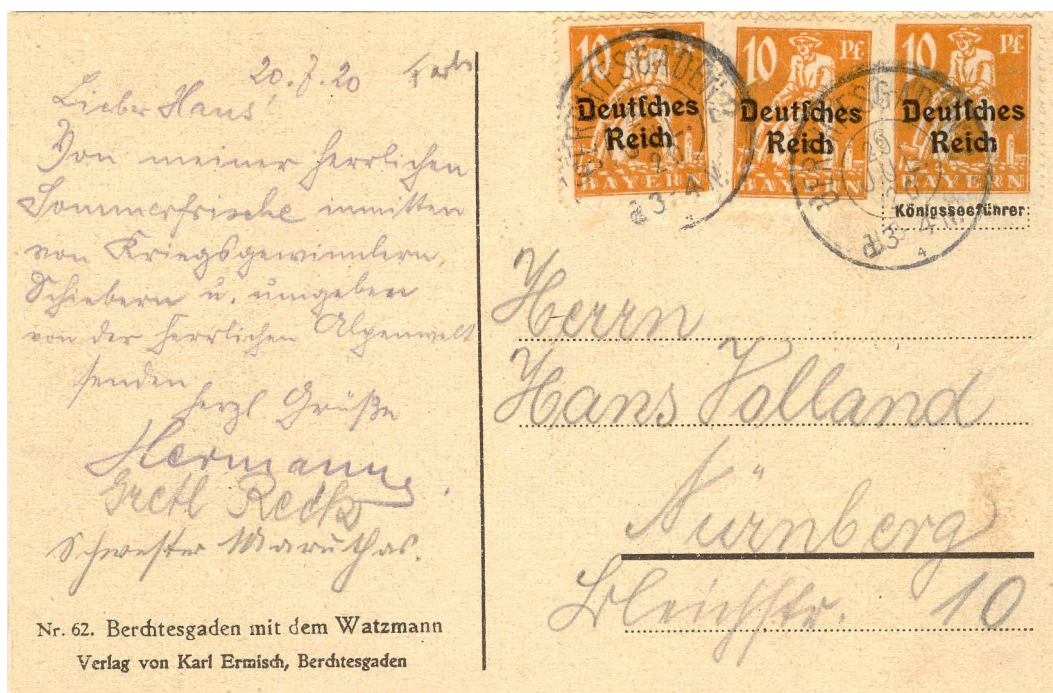 20.7.20
Lieber Hans!
Von meiner herrlichen
Sommerfrische inmitten
von Kriegsgewinnlern,
Schiebern u. umgeben
von der herrlichen Alpenwelt
senden
herzl Grüße
Hermann
Gretl
Schwester
Nr. 62. Berchtesgaden mit dem Watzmann
Verlag von Karl Ermisch, Berchtesgaden
10 Deutsches Reich BAYERN
10 Pf. Deutsches Reich BAYERN
10 Pf. Deutsches Reich BAYERN
BERCHTESGADEN
3-4 N.
BERCHTESGADEN
20 JUL
3-4 N.
Königsseeführer
Herrn
Hans Volland
Nürnberg
Bleichstr. 10